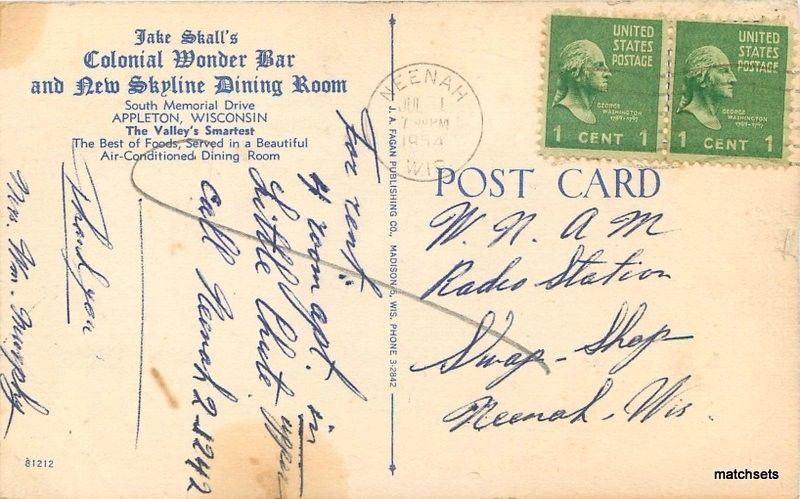 Jake Skall's
Colonial Wonder Bar
and New Skyline Dining Room
South Memorial Drive
APPLETON, WISCONSIN
The Valley's Smartest
The Best of Foods, Served in a Beautiful
Air-Conditioned Dining Room
For rent"
4 room apt. in
Little Chute upper
Call Neenah 2-8242
Thank you
Mrs. Wm. Murphy
81212
J. A. FAGAN PUBLISHING CO., MADISON 5, WIS. PHONE 3-2842
NEENAH
JUL 1
PM
1954
WIS.
UNITED STATES POSTAGE
GEORGE WASHINGTON
1789-1797
1 CENT 1
UNITED STATES POSTAGE
GEORGE WASHINGTON
1789-1797
1 CENT 1
POST CARD
W. N. A M
Radio Station
Swap-Shop
Neenah-Wis.
matchsets